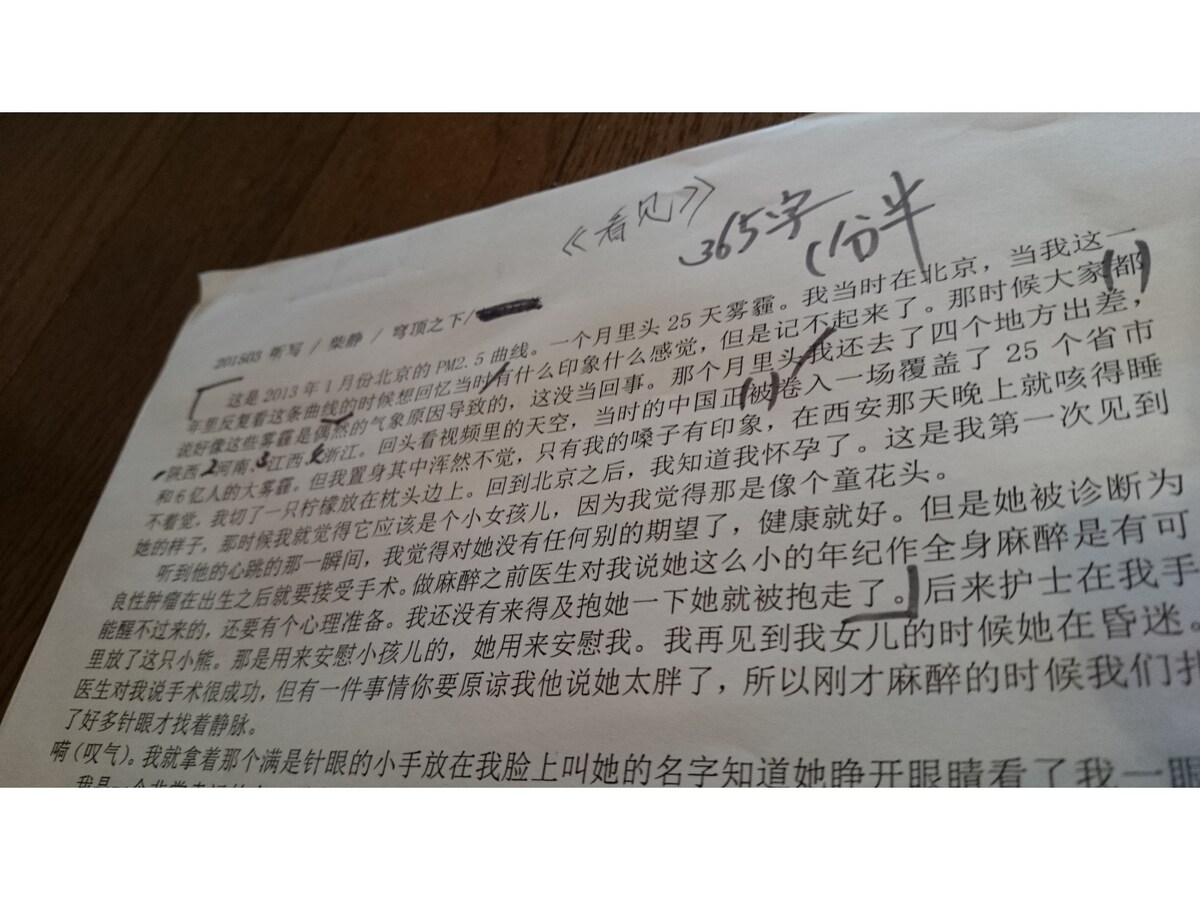 《看见》
365字
1分半
201503 听写 / 柴静 / 穹顶之下/
这是 2013 年 1 月份北京的 PM2.5 曲线。一个月里头 25 天雾霾。我当时在北京，当我这一
年里反复看这条曲线的时候想回忆当时有什么印象什么感觉，但是记不起来了。那时候大家都
说好像这些雾霾是偶然的气象原因导致的，这没当回事。那个月里头我还去了四个地方出差，
陕西2河南3江西4浙江。回头看视频里的天空，当时的中国正被卷入一场覆盖了 25 个省市
和 6 亿人的大雾霾。但我置身其中浑然不觉，只有我的嗓子有印象，在西安那天晚上就咳得睡
不着觉，我切了一只柠檬放在枕头边上。回到北京之后，我知道我怀孕了。这是我第一次见到
她的样子，那时候我就觉得它应该是个小女孩儿，因为我觉得那是像个童花头。
听到他的心跳的那一瞬间，我觉得对她没有任何别的期望了，健康就好。但是她被诊断为
良性肿瘤在出生之后就要接受手术。做麻醉之前医生对我说她这么小的年纪作全身麻醉是有可
能醒不过来的，还要有个心理准备。我还没有来得及抱她一下她就被抱走了。后来护士在我手
里放了这只小熊。那是用来安慰小孩儿的，她用来安慰我。我再见到我女儿的时候她在昏迷。
医生对我说手术很成功，但有一件事情你要原谅我他说她太胖了，所以刚才麻醉的时候我们扎
了好多针眼才找着静脉。
嗬（叹气）。我就拿着那个满是针眼的小手放在我脸上叫她的名字知道她睁开眼睛看了我一眼